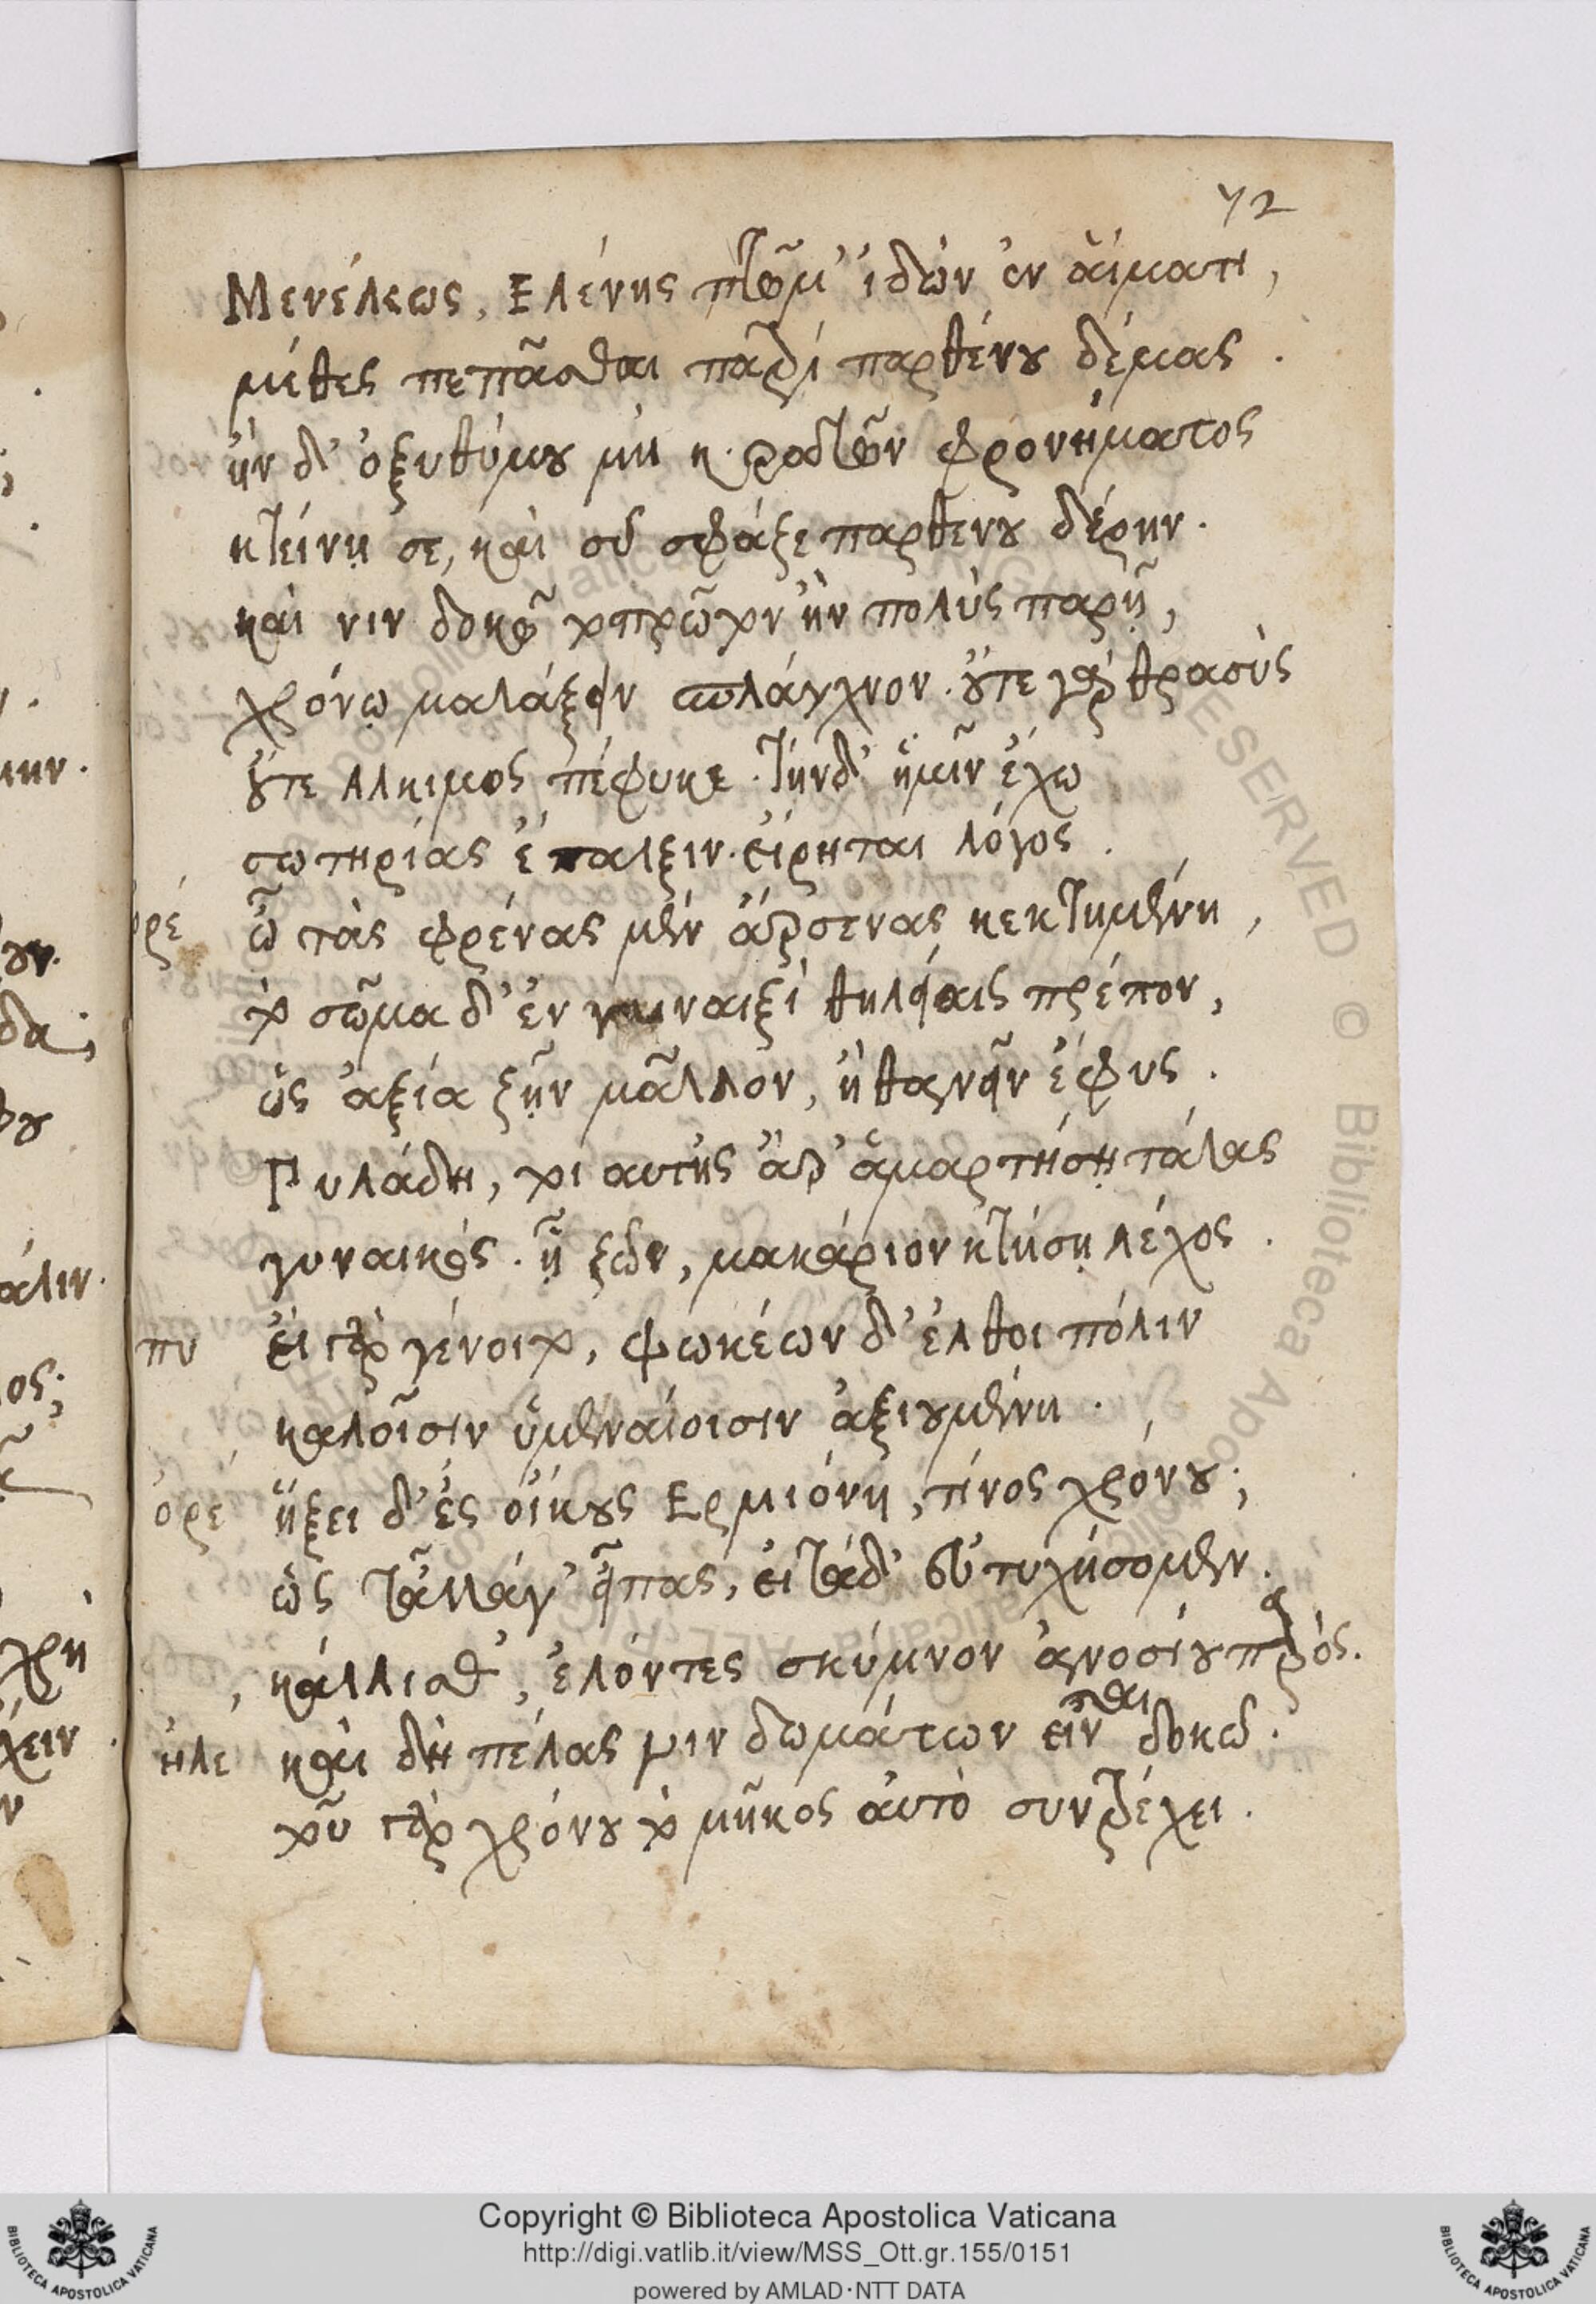 72
Μενέλεως, Ελένης πτῶμ' ἰδὼν ἐν αἵματι,
μέθες πεπᾶσθαι πατρὶ παρθένου δέμας.
ἢν δ' ὀξυθύμου μὴ κρατῶν φρονήματος
κτείνῃ σε, καὶ σὺ σφάξε παρθενου δέρην.
καὶ νιν δοκῶ τοπρῶτον ἢν πολὺς παρῇ,
χρόνῳ μαλάξειν σπλάγχνον. οὔτε γὰρ θρασὺς
οὔτε ἀλκιμος πέφυκε. τήνδ' ἡμῖν ἔχω
σωτηρίας ἔπαλξιν. εἴρηται λόγος.
ὀρέ ὦ τὰς φρένας μὲν ἄρσενας κεκτημένη,
τὸ σῶμα δ' ἐν γυναιξὶ θηλείαις πρέπον,
ὡς ἀξία ζῆν μᾶλλον, ἢ θανεῖν ἔφυς.
Πυλάδη, τοιαυτης ἆρ' ἁμαρτήσῃ τάλας
γυναικός. ἢ ζῶν, μακάριον κτήσῃ λέχος.
πυ εἰ γὰρ γένοιτο, φωκέων δ' ἔλθοι πόλιν
καλοῖσιν ὑμεναίοισιν ἀξιουμένη.
ὀρέ ἥξει δ' ἐς οἴκους Ερμιόνη, τίνος χρόνου;
ὡς τἄλλάγ' εἶπας, εἰ τάδ' εὐτυχήσομεν.
κάλλισθ', ἑλόντες σκύμνον ἀνοσίου πατρός.
ἠλε καὶ δὴ πέλας μιν δωμάτων εἶναι δοκῶ.
τοῦ γὰρ χρόνου τὸ μῆκος ἀυτὸ συντρέχει.
Copyright © Biblioteca Apostolica Vaticana
http://digi.vatlib.it/view/MSS_Ott.gr.155/0151
powered by AMLAD·NTT DATA